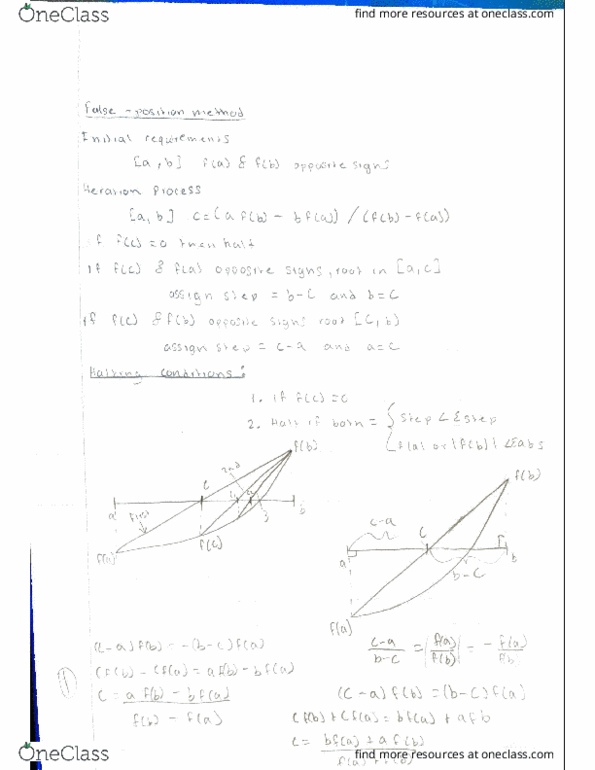 OneClass
find more resources at oneclass.com
False - position method
Initial requirements
[a, b] f(a) & f(b) opposite signs
Iteration Process
[a, b] c = (a f(b) - b f(a)) / (f(b) - f(a))
if f(c) = 0 then halt
if f(c) & f(a) opposite signs, root in [a, c]
assign step = b-c and b = c
if f(c) & f(b) opposite signs root [c, b)
assign step = c-a and a = c
Halting conditions:
1. if f(c) = c
2. Halt if both = { Step < Ɛstep
f(a) or |f(b)| < Ɛabs
f(b)
2nd
c
a
first
b
f(a)
f(c)
f(b)
c-a
c
a
b
b-c
f(a)
(c-a) f(b) = -(b-c) f(a)
c f(b) - c f(a) = a f(b) - b f(a)
c = a f(b) - b f(a)
f(b) - f(a)
c-a / b-c = |f(a) / f(b)| = - f(a) / f(b
(c-a) f(b) = (b-c) f(a)
c f(b) + c f(a) = b f(a) + a f b
c = b f(a) + a f(b)
f(a) + f(b)
OneClass
find more resources at oneclass.com